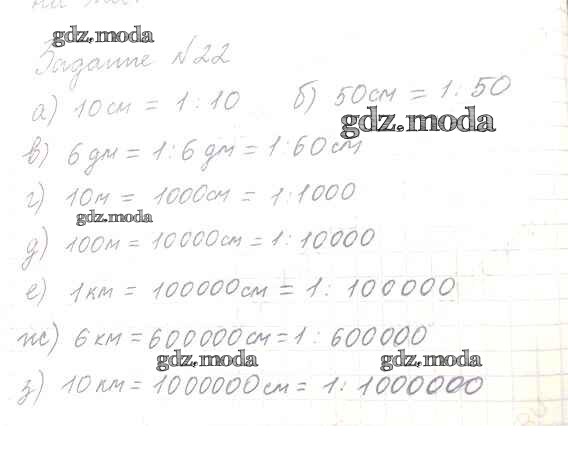 gdz.moda
Задание №22
а) 10см = 1 : 10 б) 50см = 1 : 50
gdz.moda
в) 6 дм = 1 : 6 дм = 1 : 60 см
г) 10м = 1000см = 1 : 1000
gdz.moda
д) 100м = 10000см = 1 : 10000
е) 1 км = 100000см = 1 : 100000
ж) 6 км = 600000см = 1 : 600000
gdz.moda gdz.moda
з) 10 км = 1000000см = 1 : 1000000